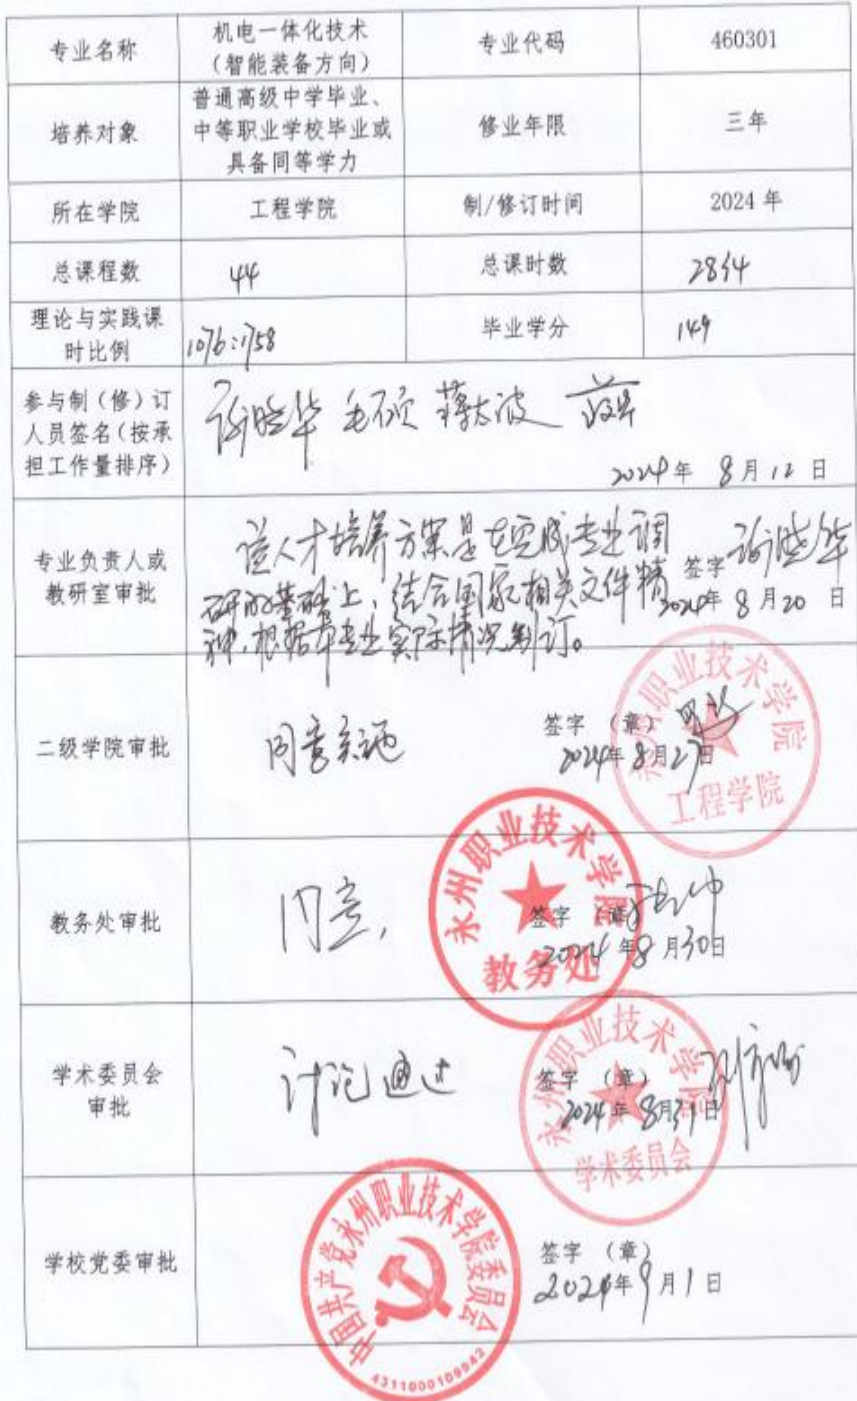 专业名称
机电一体化技术
（智能装备方向）
专业代码
460301
培养对象
普通高级中学毕业、
中等职业学校毕业或
具备同等学力
修业年限
三年
所在学院
工程学院
制/修订时间
2024 年
总课程数
44
总课时数
2834
理论与实践课
时比例
1076:1758
毕业学分
149
参与制（修）订
人员签名（按承
担工作量排序）
谢晓华 毛硕
2024年 8月12日
专业负责人或
教研室审批
该人才培养方案是在完成专业调
研的基础上，结合国家相关文件精
神，根据本专业实际情况制订。
签字 谢晓华
2024年 8月20日
二级学院审批
同意实施
签字 （章）
2024年 8月27日
永州职业技术学院
工程学院
教务处审批
同意，
签字 （章）
2024年8月30日
永州职业技术学院
教务处
学术委员会
审批
讨论通过
签字 （章）
2024年 8月31日
永州职业技术学院
学术委员会
学校党委审批
签字 （章）
2024年9月1日
中国共产党永州职业技术学院委员会
4311000109942